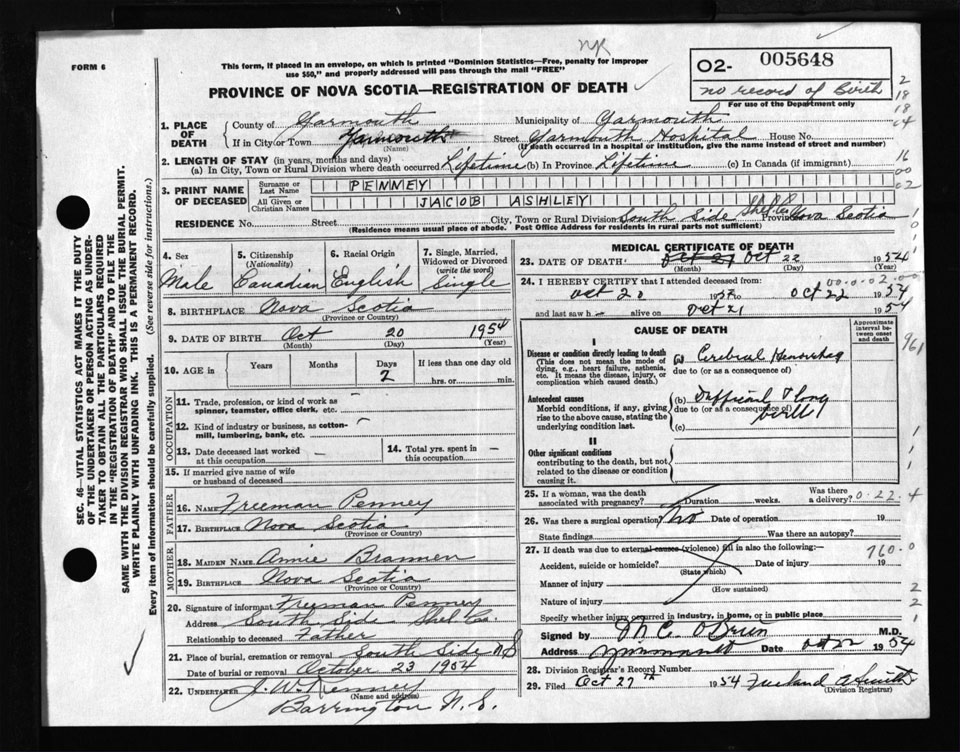 NR
FORM 6
This form, if placed in an envelope, on which is printed "Dominion Statistics—Free, penalty for improper
use $50," and properly addressed will pass through the mail "FREE"
PROVINCE OF NOVA SCOTIA—REGISTRATION OF DEATH
O2- 005648
no record of Birth
For use of the Department only
2
18
18
04
1. PLACE OF DEATH
County of Yarmouth Municipality of Yarmouth
If in City or Town Yarmouth Street Yarmouth Hospital House No.
(Name) (If death occurred in a hospital or institution, give the name instead of street and number)
2. LENGTH OF STAY (in years, months and days)
(a) In City, Town or Rural Division where death occurred Lifetime (b) In Province Lifetime (c) In Canada (if immigrant)
16
00
02
3. PRINT NAME OF DECEASED
Surname or Last Name PENNEY
All Given or Christian Names JACOB ASHLEY
RESIDENCE No. Street City, Town or Rural Division South Side Nova Scotia
(Residence means usual place of abode. Post Office Address for residents in rural parts not sufficient)
4. Sex
Male
5. Citizenship
(Nationality)
Canadian
6. Racial Origin
English
7. Single, Married,
Widowed or Divorced
(write the word)
Single
8. BIRTHPLACE Nova Scotia
(Province or Country)
9. DATE OF BIRTH Oct 20 1954
(Month) (Day) (Year)
10. AGE in Years Months Days If less than one day old
2 hrs. or min.
OCCUPATION
11. Trade, profession or kind of work as
spinner, teamster, office clerk, etc.
12. Kind of industry or business, as cotton-
mill, lumbering, bank, etc.
13. Date deceased last worked
at this occupation —
14. Total yrs. spent in
this occupation —
15. If married give name of wife
or husband of deceased
FATHER
16. NAME Freeman Penney
17. BIRTHPLACE Nova Scotia
(Province or Country)
MOTHER
18. MAIDEN NAME Annie Brannen
19. BIRTHPLACE Nova Scotia
(Province or Country)
20. Signature of informant Freeman Penney
Address South Side Shel Co.
Relationship to deceased Father
21. Place of burial, cremation or removal South Side NS
Date of burial or removal October 23 1954
22. UNDERTAKER J. W. Kenney
(Name and address)
Barrington N.S.
MEDICAL CERTIFICATE OF DEATH
23. DATE OF DEATH Oct 21 Oct 22 1954
(Month) (Day) (Year)
24. I HEREBY CERTIFY that I attended deceased from:
Oct 20 1954 to Oct 22 1954
and last saw h alive on Oct 21 1954
CAUSE OF DEATH
Approximate
interval be-
tween onset
and death
961
I
Disease or condition directly leading to death
(This does not mean the mode of
dying, e.g., heart failure, asthenia,
etc. It means the disease, injury, or
complication which caused death.)
(a) Cerebral Hemorrhage
due to (or as a consequence of)
Antecedent causes
Morbid conditions, if any, giving
rise to the above cause, stating the
underlying condition last.
(b) Difficult & long
due to (or as a consequence of)
birth
(c)
II
Other significant conditions
contributing to the death, but not
related to the disease or condition
causing it.
25. If a woman, was the death
associated with pregnancy? Duration weeks. Was there
a delivery?
0.22.4
26. Was there a surgical operation? No Date of operation 19
State findings Was there an autopsy?
27. If death was due to external causes (violence) fill in also the following:—
Accident, suicide or homicide? Date of injury 19
(State which)
760.0
Manner of injury
(How sustained)
Nature of injury
Specify whether injury occurred in industry, in home, or in public place
Signed by M C O'Brien M.D.
Address Date Oct 22 1954
28. Division Registrar's Record Number
29. Filed Oct 27th 1954
(Division Registrar)
SEC. 46—VITAL STATISTICS ACT MAKES IT THE DUTY
OF THE UNDERTAKER OR PERSON ACTING AS UNDER-
TAKER TO OBTAIN ALL THE PARTICULARS REQUIRED
IN THE "REGISTRATION OF DEATH" AND TO FILE THE
SAME WITH THE DIVISION REGISTRAR WHO SHALL ISSUE THE BURIAL PERMIT.
WRITE PLAINLY WITH UNFADING INK. THIS IS A PERMANENT RECORD.
Every item of information should be carefully supplied. (See reverse side for instructions.)